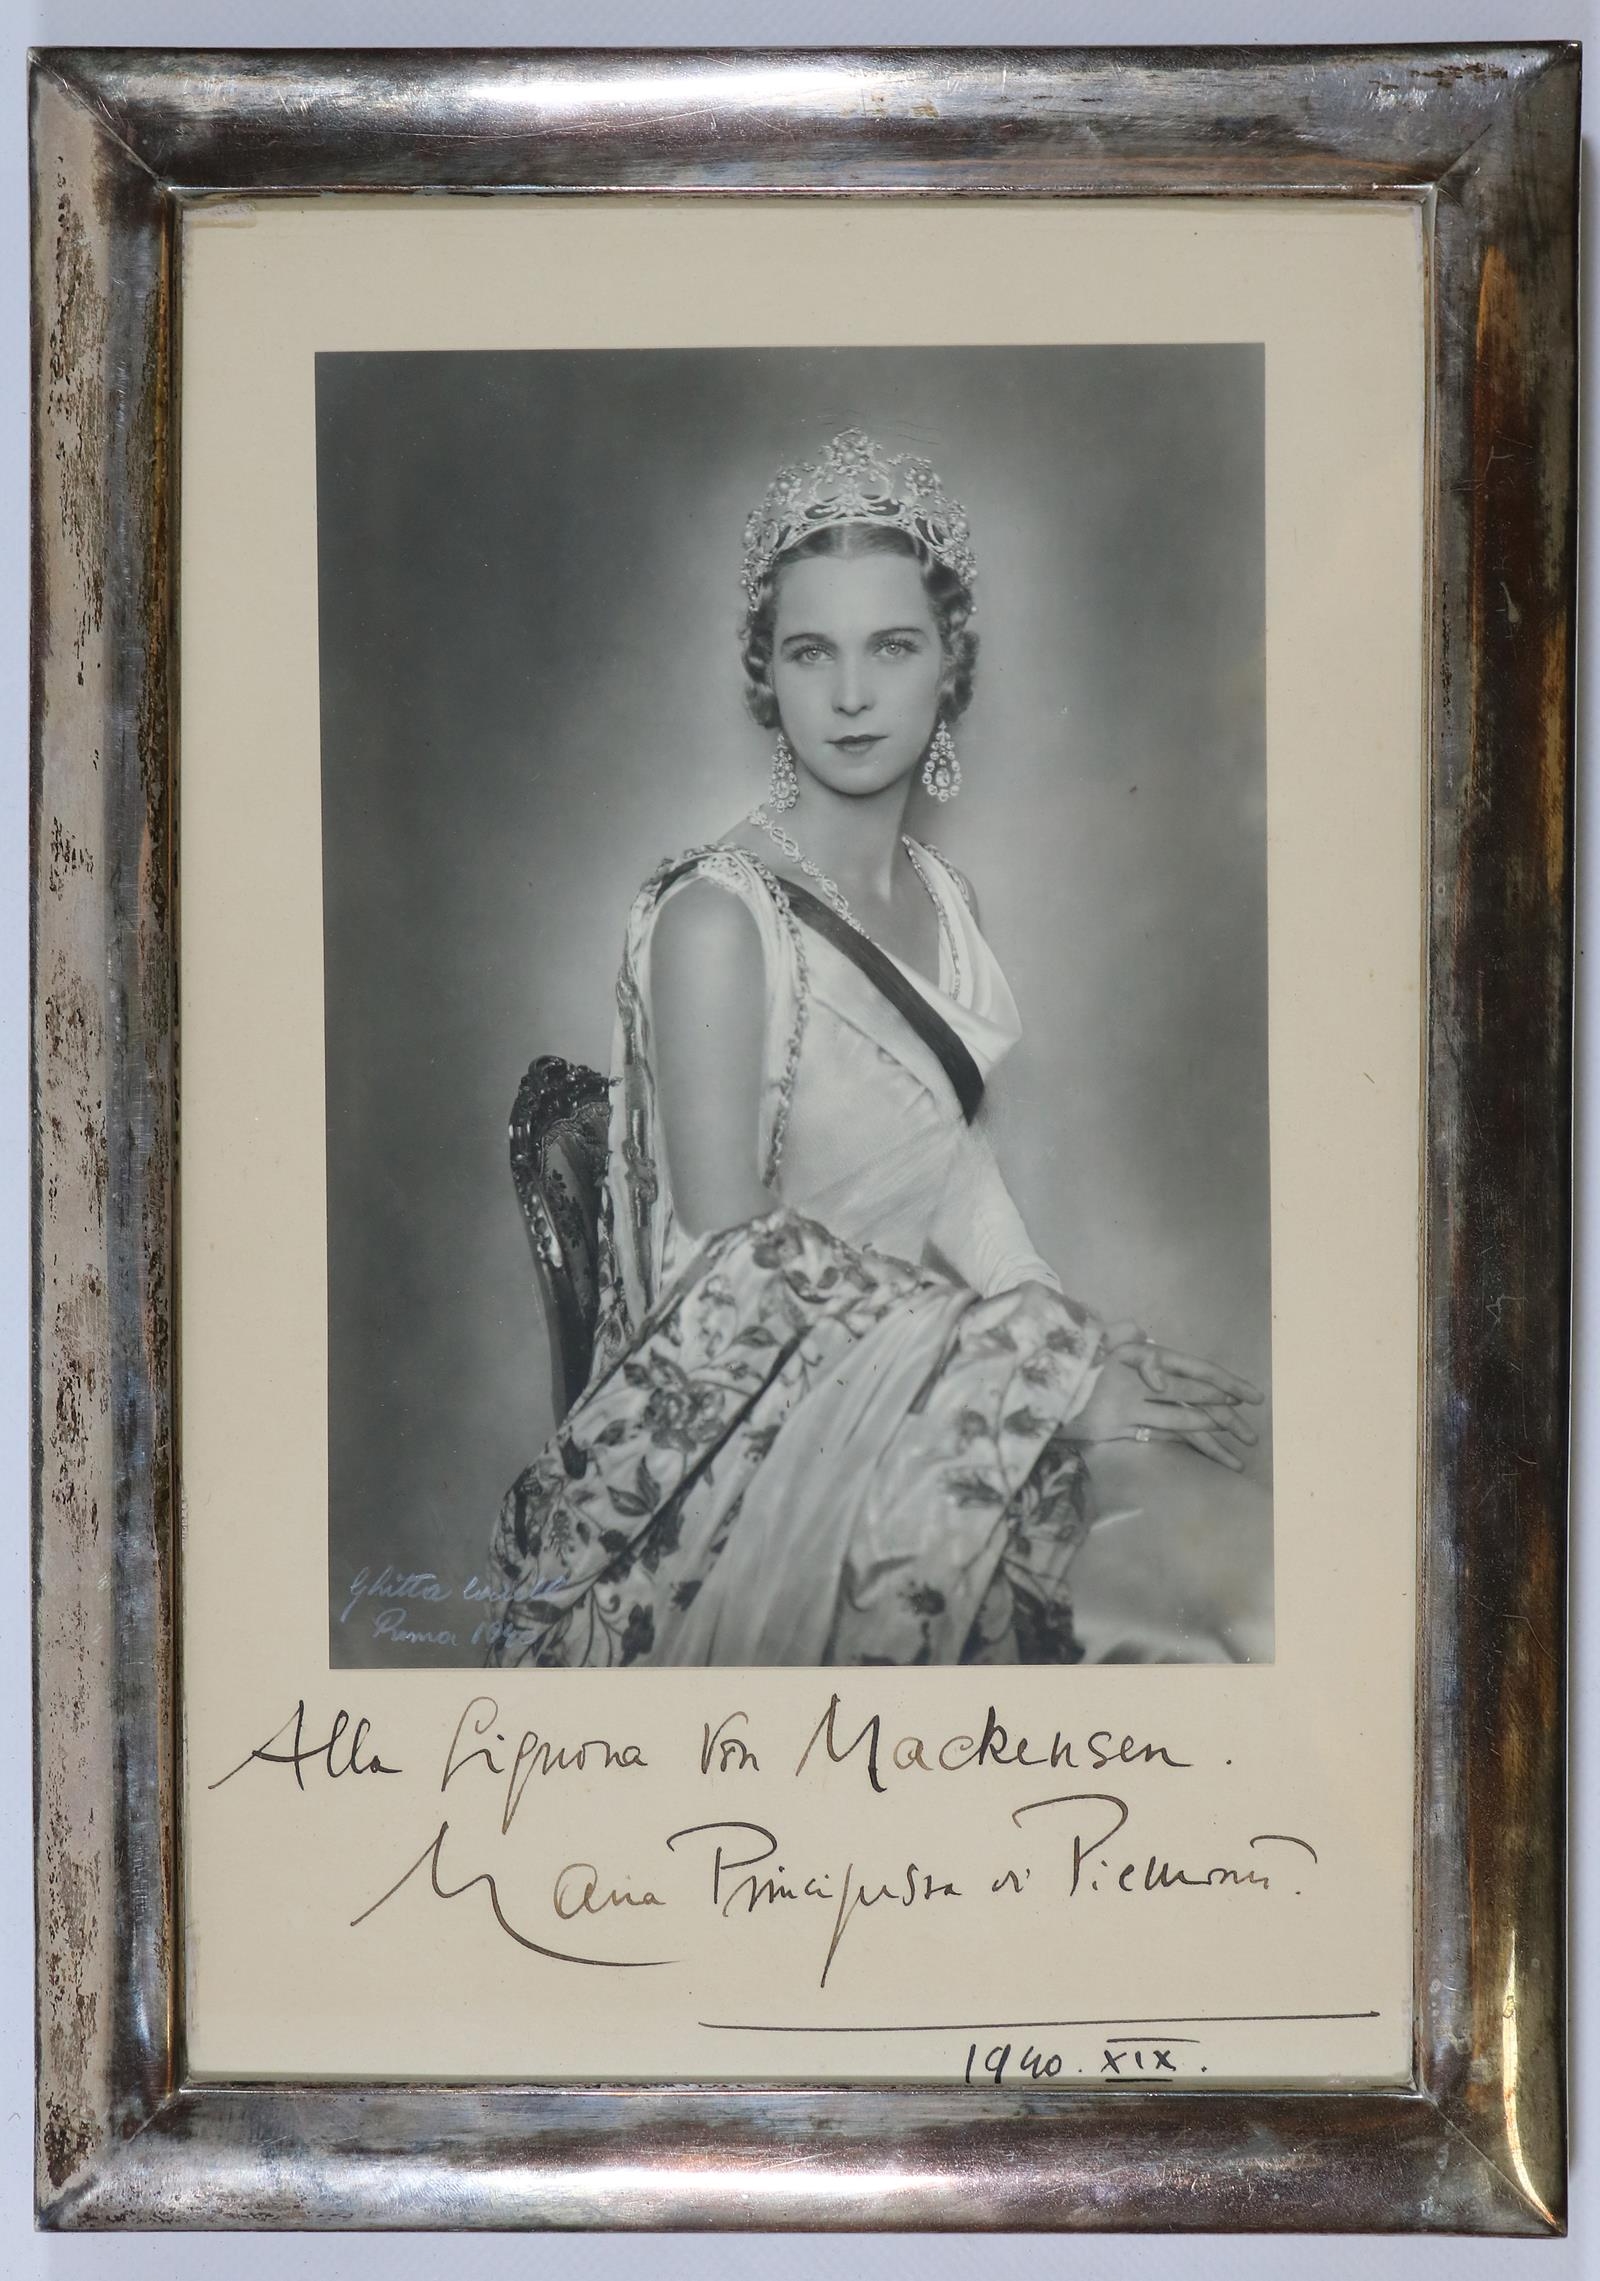 Ghitta Carell
Roma 1940
Alla Signora von Mackensen.
Maria Principessa di Piemonte.
1940. XIX.